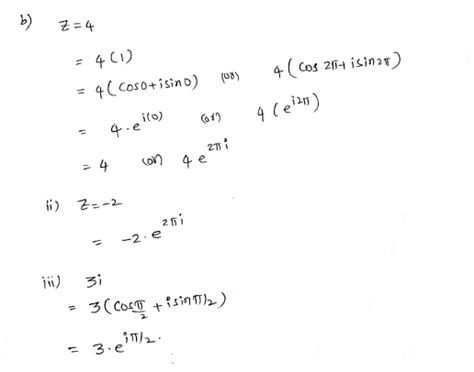 b) z = 4
= 4(1)
= 4(cos0+isin0) (or) 4(cos 2π+ isin2π)
= 4.e^{i(0)} (or) 4(e^{i2π})
= 4 (or) 4e^{2πi}
ii) z=-2
= -2.e^{2πi}
iii) 3i
= 3(cosπ/2 + isinπ/2)
= 3.e^{iπ/2}.